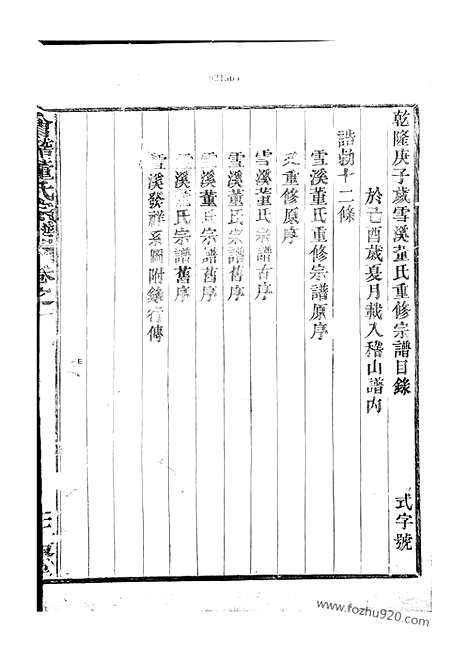 921564
乾隆庚子歲雪溪董氏重修宗譜目錄 式字號
於己酉歲夏月載入稽山譜內
誥勅十二條
雪溪董氏重修宗譜原序
又重修原序
雪溪董氏宗譜古序
雪溪董氏宗譜舊序
雪溪董氏宗譜舊序
雪溪董氏宗譜舊序
雪溪發祥系圖附錄行傳
會稽董氏宗譜 卷之一
www.fozhu920.com